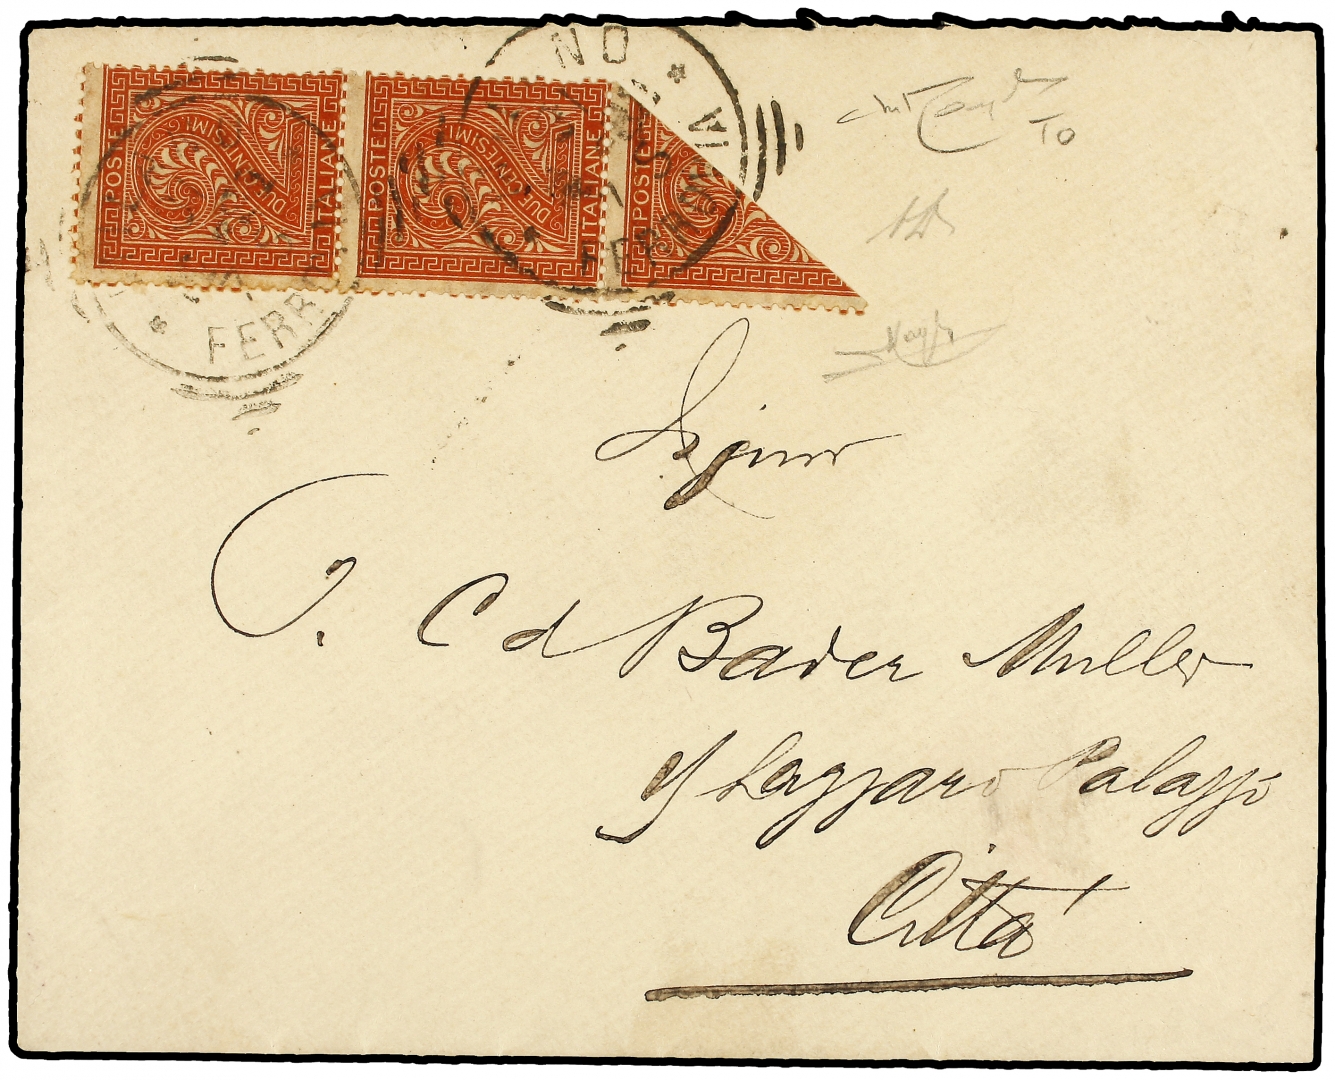 POSTE DUE CENTESIMI ITALIANE
POSTE DUE CENTESIMI ITALIANE
POSTE
NO
FERR
FERROVIA
TO
Signor
C d Bader Muller
S Lazzaro Palazzo
Città